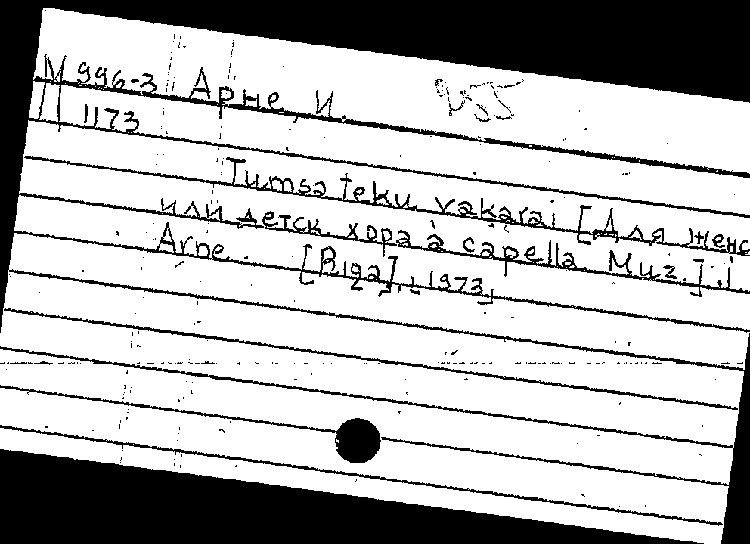 М 996-3 Арне, И. 255
1173
Tumsa teku vakarai [Для женс
или детск. хора à capella. Muz.] I.
Arne. [Riga], 1973,